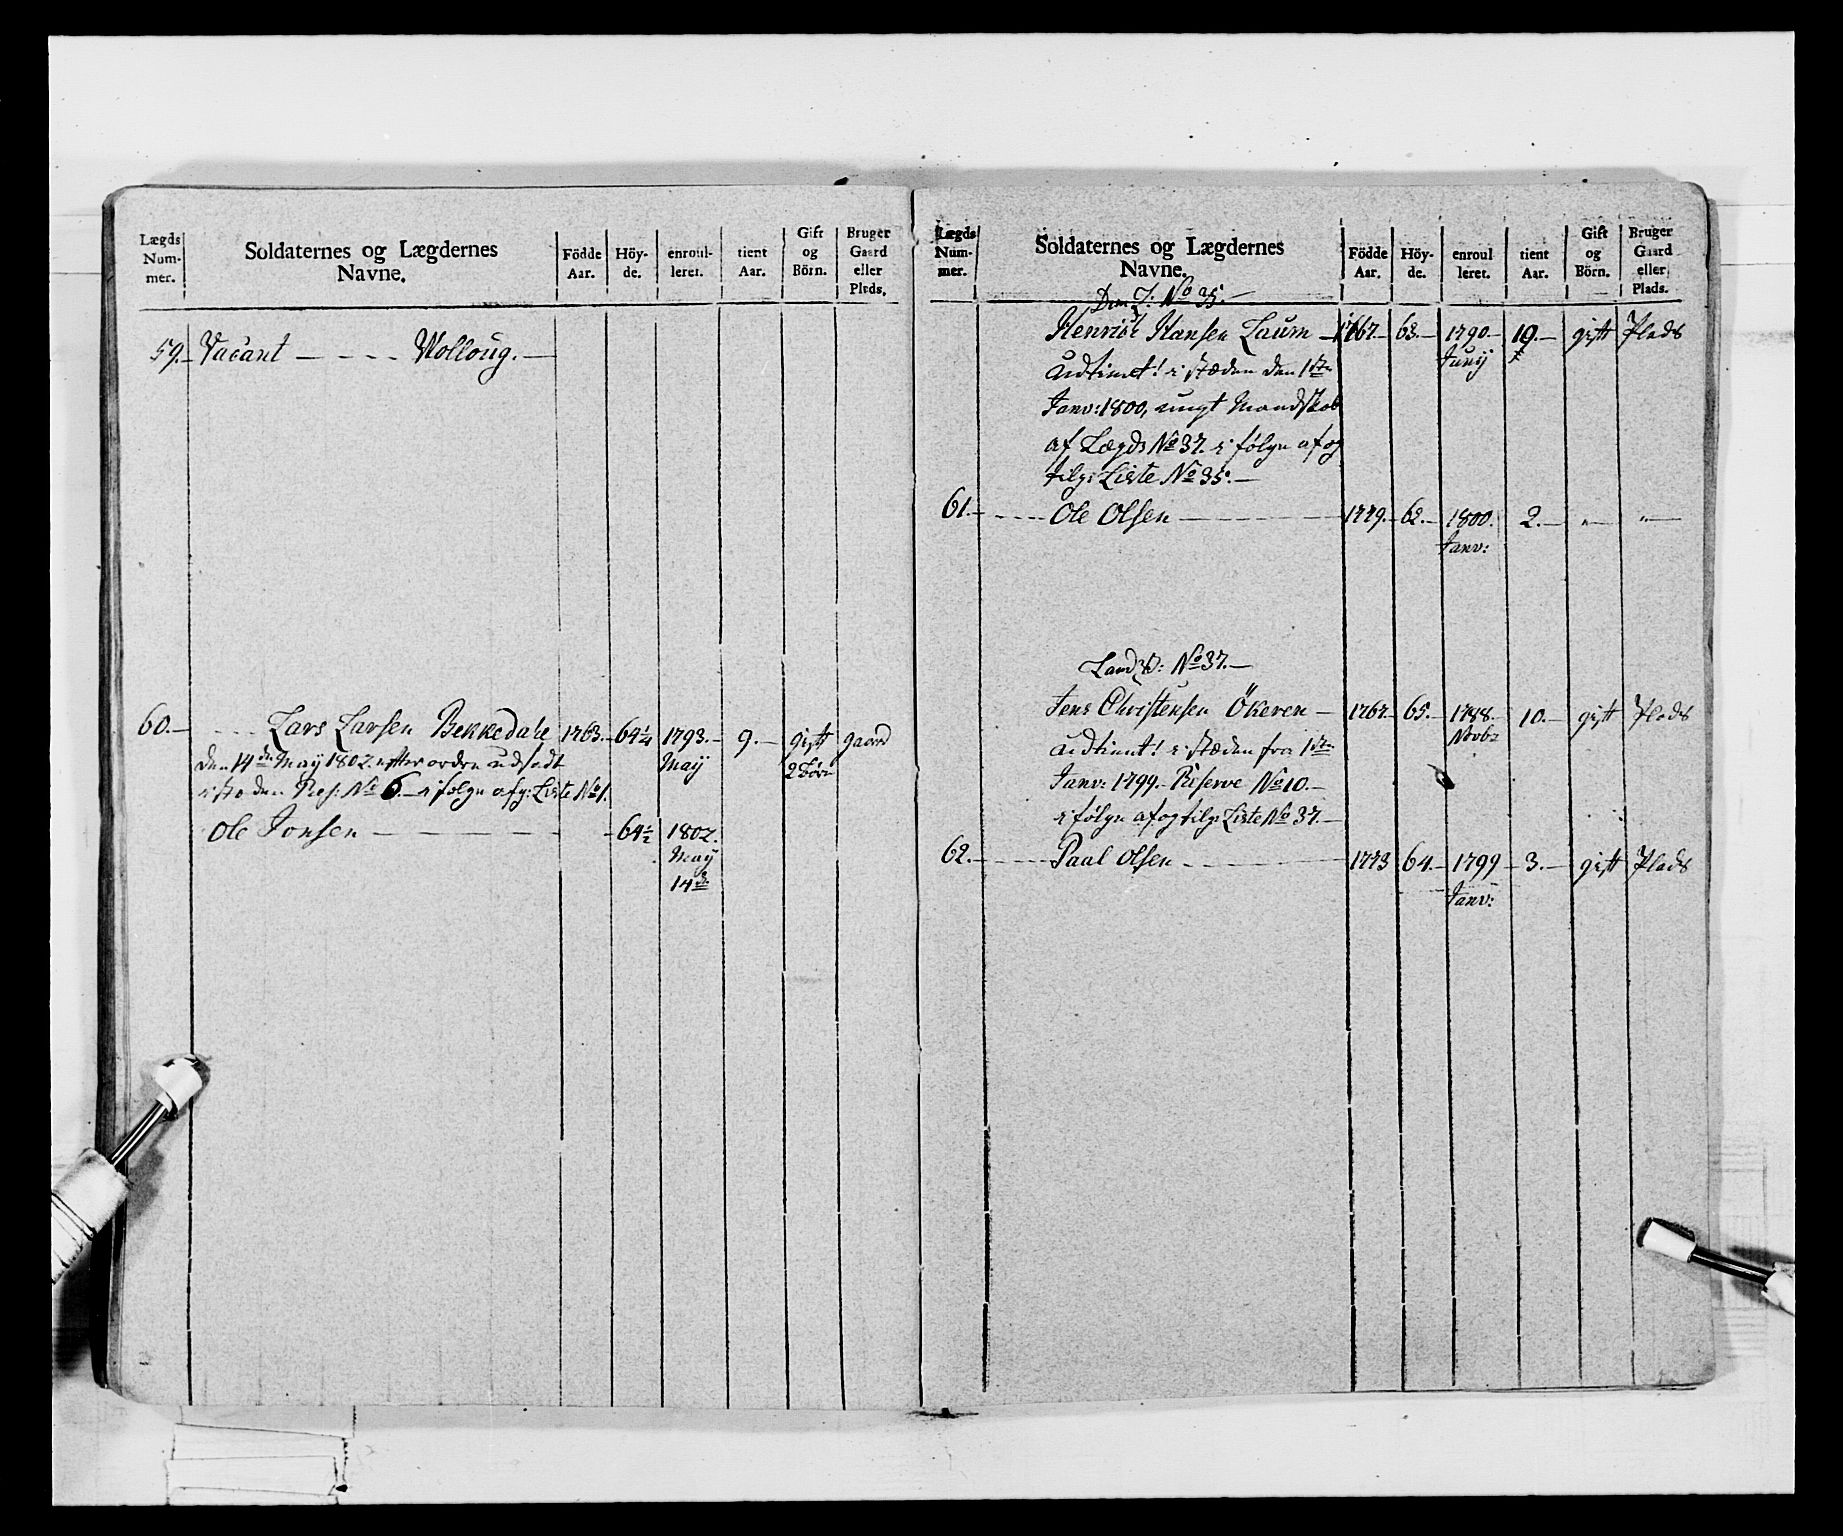 Lægds Num- mer.
Soldaternes og Lægdernes Navne.
Födde Aar.
Höy- de.
enroul- leret.
tient Aar.
Gift og Börn.
Bruger Gaard eller Plads.
59. Vacant Wolloug.
60. Lars Larsen Bekkedahl 1763. 64 1/4 1793. 9. gift gaard
May 2 börn
den 14de May 1802 efter ordre udsadt
i steden Res: No 6. i følge afg: Liste No 1.
Ole Jonsen 64 1/2 1802.
May
14de
Lægds Num- mer.
Soldaternes og Lægdernes Navne.
Födde Aar.
Höy- de.
enroul leret.
tient Aar.
Gift og Börn.
Bruger Gaard eller Plads.
No 35.
Henrich Hansen Laum 1767. 63. 1790. 10. gift Plads
Junij
udtient! i stæden den 1ste
Janv: 1800, ungt Mandskab
af Lægds No 37. i følge af og
tilg: Liste No 35.
61. Ole Olsen 1779. 62. 1800. 2. " "
Janv:
Landv: No 37.
Jens Christensen Ökeren 1767. 65. 1788. 10. gift Plads
Novbr
udtient! i stæden fra 1ste
Janv: 1799. Reserve No 10.
i følge af og tilg: Liste No 37.
62. Paal Olsen 1773 64. 1799 3. gift Plads
Janv: